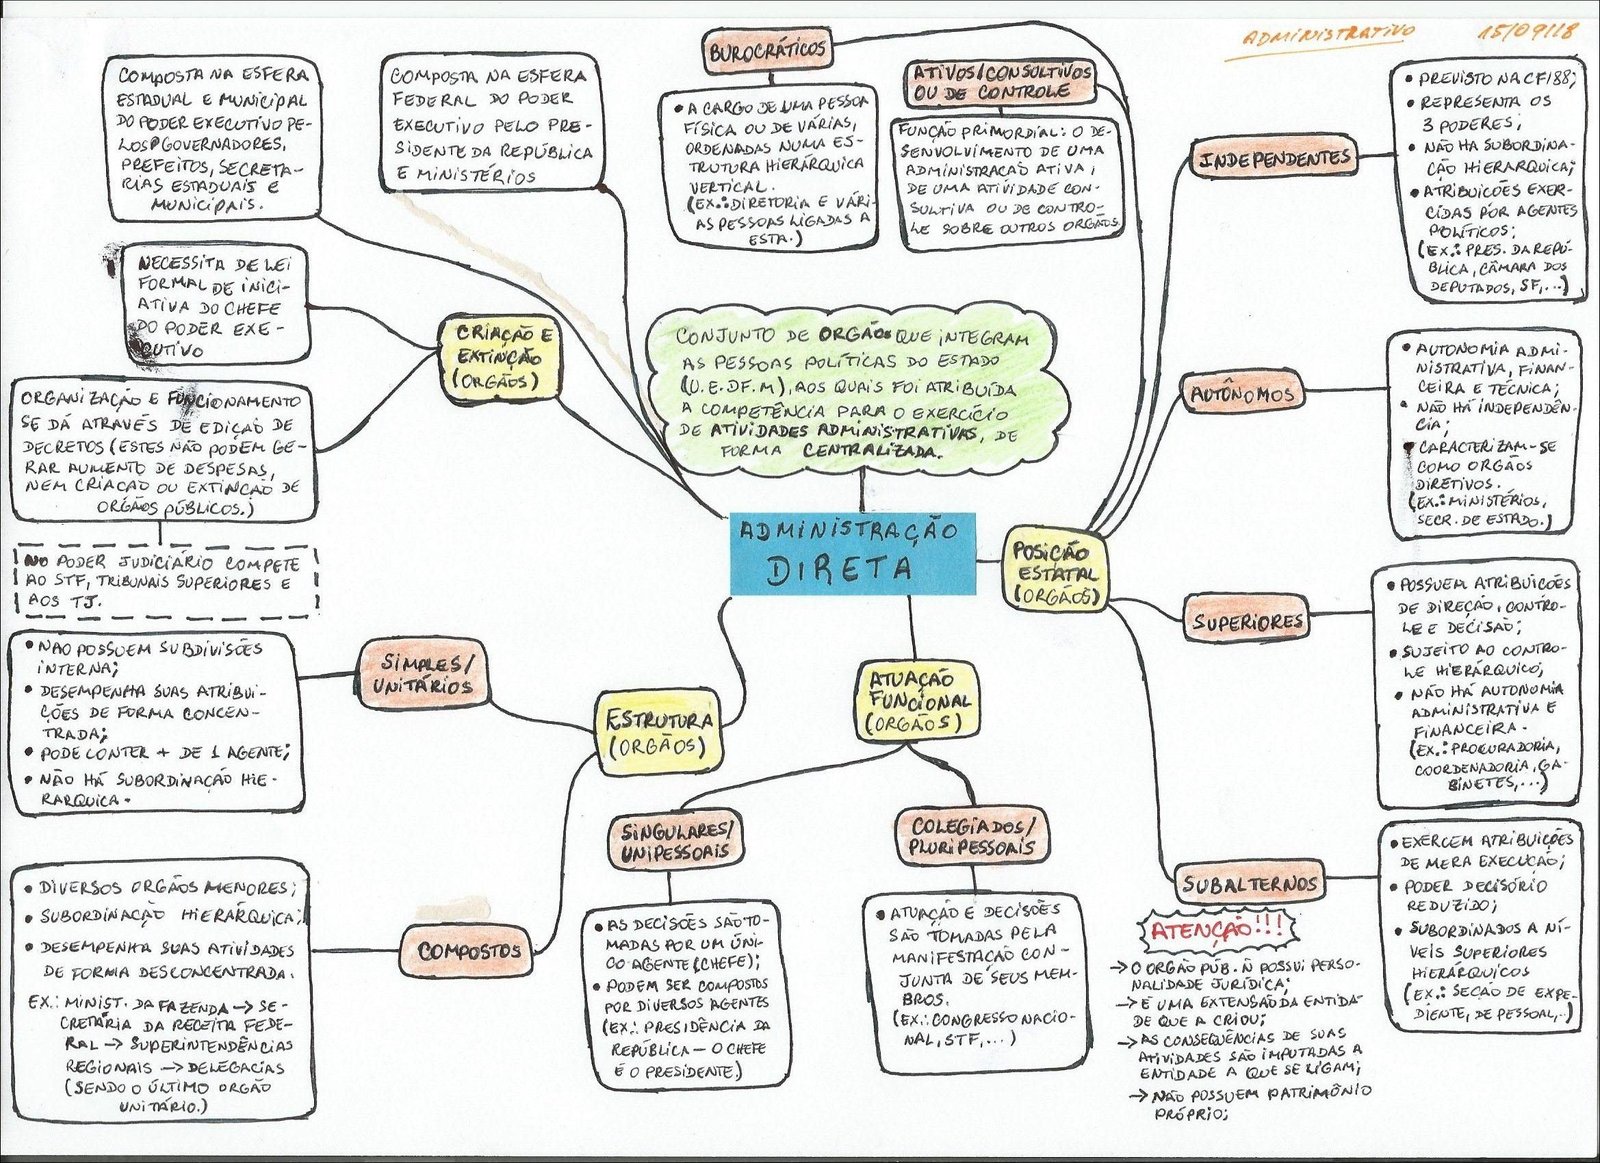 ADMINISTRATIVO 15/09/18
COMPOSTA NA ESFERA
ESTADUAL E MUNICIPAL
DO PODER EXECUTIVO PE-
LOS GOVERNADORES,
PREFEITOS, SECRETA-
RIAS ESTADUAIS E
MUNICIPAIS.
COMPOSTA NA ESFERA
FEDERAL DO PODER
EXECUTIVO PELO PRE-
SIDENTE DA REPÚBLICA
E MINISTÉRIOS
BUROCRÁTICOS
• A CARGO DE UMA PESSOA
FÍSICA OU DE VÁRIAS,
ORDENADAS NUMA ES-
TRUTURA HIERÁRQUICA
VERTICAL.
(EX.: DIRETORIA E VÁRI-
AS PESSOAS LIGADAS A
ESTA.)
ATIVOS/CONSULTIVOS
OU DE CONTROLE
FUNÇÃO PRIMORDIAL: O DE-
SENVOLVIMENTO DE UMA
ADMINISTRAÇÃO ATIVA,
DE UMA ATIVIDADE CON-
SULTIVA OU DE CONTRO-
LE SOBRE OUTROS ORGÃOS
INDEPENDENTES
• PREVISTO NA CF/88;
• REPRESENTA OS
3 PODERES;
• NÃO HÁ SUBORDINA-
ÇÃO HIERÁRQUICA;
• ATRIBUICÕES EXER-
CIDAS POR AGENTES
POLÍTICOS;
(EX.: PRES. DA REPÚ-
BLICA, CÂMARA DOS
DEPUTADOS, SF,...)
NECESSITA DE LEI
FORMAL DE INICI-
ATIVA DO CHEFE
DO PODER EXE-
CUTIVO
CRIAÇÃO E
EXTINÇÃO
(ORGÃOS)
ORGANIZAÇÃO E FUNCIONAMENTO
SE DÁ ATRAVÉS DE EDIÇÃO DE
DECRETOS (ESTES NÃO PODEM GE-
RAR AUMENTO DE DESPESAS,
NEM CRIACAO OU EXTINÇÃO DE
ORGÃOS PÚBLICOS.)
NO PODER JUDICIÁRIO COMPETE
AO STF, TRIBUNAIS SUPERIORES E
AOS TJ.
CONJUNTO DE ORGÃOS QUE INTEGRAM
AS PESSOAS POLÍTICAS DO ESTADO
(U.E.DF.M), AOS QUAIS FOI ATRIBUÍDA
A COMPETÊNCIA PARA O EXERCÍCIO
DE ATIVIDADES ADMINISTRATIVAS, DE
FORMA CENTRALIZADA.
ADMINISTRAÇÃO
DIRETA
POSIÇÃO
ESTATAL
(ORGÃOS)
AUTÔNOMOS
• AUTONOMIA ADMI-
NISTRATIVA, FINAN-
CEIRA E TÉCNICA;
• NÃO HÁ INDEPENDÊN-
CIA;
• CARACTERIZAM-SE
COMO ORGÃOS
DIRETIVOS.
(EX.: MINISTÉRIOS,
SECR. DE ESTADO.)
SUPERIORES
• POSSUEM ATRIBUICÕES
DE DIREÇÃO, CONTRO-
LE E DECISÃO;
• SUJEITO AO CONTRO-
LE HIERÁRQUICO;
• NÃO HÁ AUTONOMIA
ADMINISTRATIVA E
FINANCEIRA.
(EX.: PROCURADORIA,
COORDENADORIA, GA-
BINETES,...)
SIMPLES/
UNITÁRIOS
• NAO POSSUEM SUBDIVISÕES
INTERNA;
• DESEMPENHA SUAS ATRIBUI-
ÇÕES DE FORMA CONCEN-
TRADA;
• PODE CONTER + DE 1 AGENTE;
• NÃO HÁ SUBORDINAÇÃO HIE-
RARQUICA.
ESTRUTURA
(ORGÃOS)
COMPOSTOS
• DIVERSOS ORGÃOS MENORES;
• SUBORDINAÇÃO HIERÁRQUICA;
• DESEMPENHA SUAS ATIVIDADES
DE FORMA DESCONCENTRADA.
EX.: MINIST. DA FAZENDA → SE-
CRETÁRIA DA RECEITA FEDE-
RAL → SUPERINTENDÊNCIAS
REGIONAIS → DELEGACIAS
(SENDO O ÚLTIMO ORGÃO
UNITÁRIO.)
ATUAÇÃO
FUNCIONAL
(ORGÃOS)
SINGULARES/
UNIPESSOAIS
• AS DECISÕES SÃO TO-
MADAS POR UM ÚNI-
CO AGENTE (CHEFE);
• PODEM SER COMPOSTOS
POR DIVERSOS AGENTES
(EX.: PRESIDÊNCIA DA
REPÚBLICA – O CHEFE
É O PRESIDENTE.)
COLEGIADOS/
PLURIPESSOAIS
• ATUAÇÃO E DECISÕES
SÃO TOMADAS PELA
MANIFESTAÇÃO CON-
JUNTA DE SEUS MEM-
BROS.
(EX.: CONGRESSO NACIO-
NAL, STF,...)
SUBALTERNOS
• EXERCEM ATRIBUIÇÕES
DE MERA EXECUCÃO;
• PODER DECISÓRIO
REDUZIDO;
• SUBORDINADOS A NÍ-
VEIS SUPERIORES
HIERÁRQUICOS
(EX.: SEÇÃO DE EXPE-
DIENTE, DE PESSOAL,..)
ATENÇÃO!!!
→ O ORGÃO PÚB. Ñ POSSUI PERSO-
NALIDADE JURÍDICA;
→ É UMA EXTENSÃO DA ENTIDA-
DE QUE A CRIOU;
→ AS CONSEQUÊNCIAS DE SUAS
ATIVIDADES SÃO IMPUTADAS A
ENTIDADE A QUE SE LIGAM;
→ NÃO POSSUEM PATRIMÔNIO
PRÓPRIO;